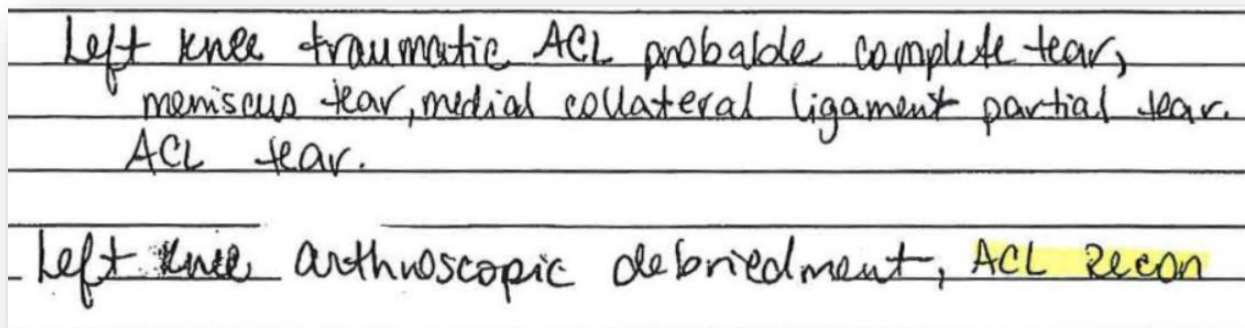 Left knee traumatic ACL probable complete tear,
meniscus tear, medial collateral ligament partial tear.
ACL tear.
Left knee arthroscopic debriedment, ACL Recon